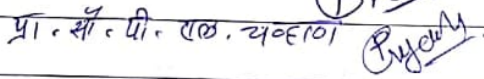 प्रा. सौ. पी. एल. चव्हाण